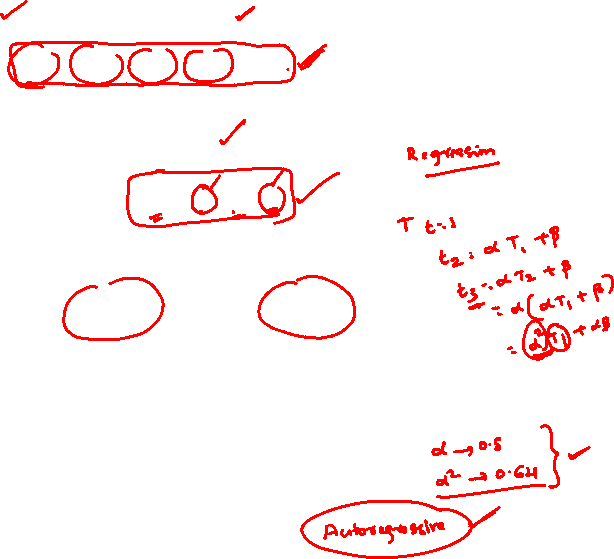 Regression
T t=1
t2 = αT1 + β
t3 = αT2 + β
= α(αT1 + β)
= α²T1 + αβ
α → 0.8
α² → 0.64
Autoregressive